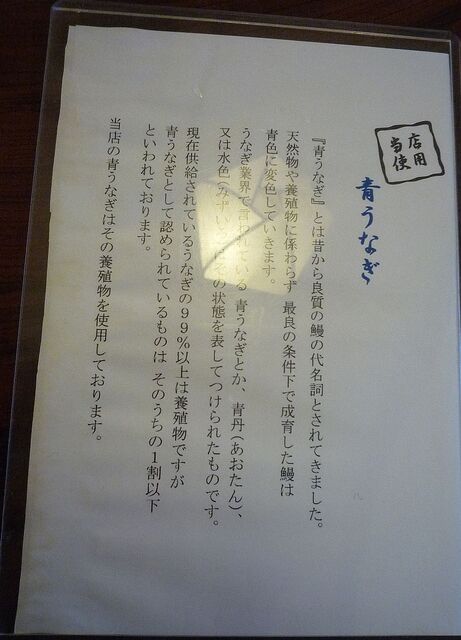 当店使用
青うなぎ
『青うなぎ』とは昔から良質の鰻の代名詞とされてきました。
天然物や養殖物に係わらず 最良の条件下で成育した鰻は
青色に変色していきます。
うなぎ業界で言われている 青うなぎとか、青丹(あおたん)、
又は水色(みずいろ)はその状態を表してつけられたものです。
現在供給されているうなぎの99%以上は養殖物ですが
青うなぎとして認められているものは そのうちの1割以下
といわれております。
当店の青うなぎはその養殖物を使用しております。